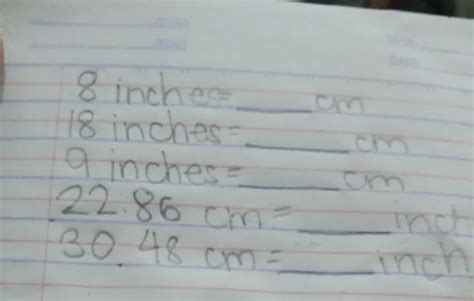 8 inches=____cm
18 inches=____cm
9 inches=____cm
22.86 cm=____inch
30.48 cm=____inch